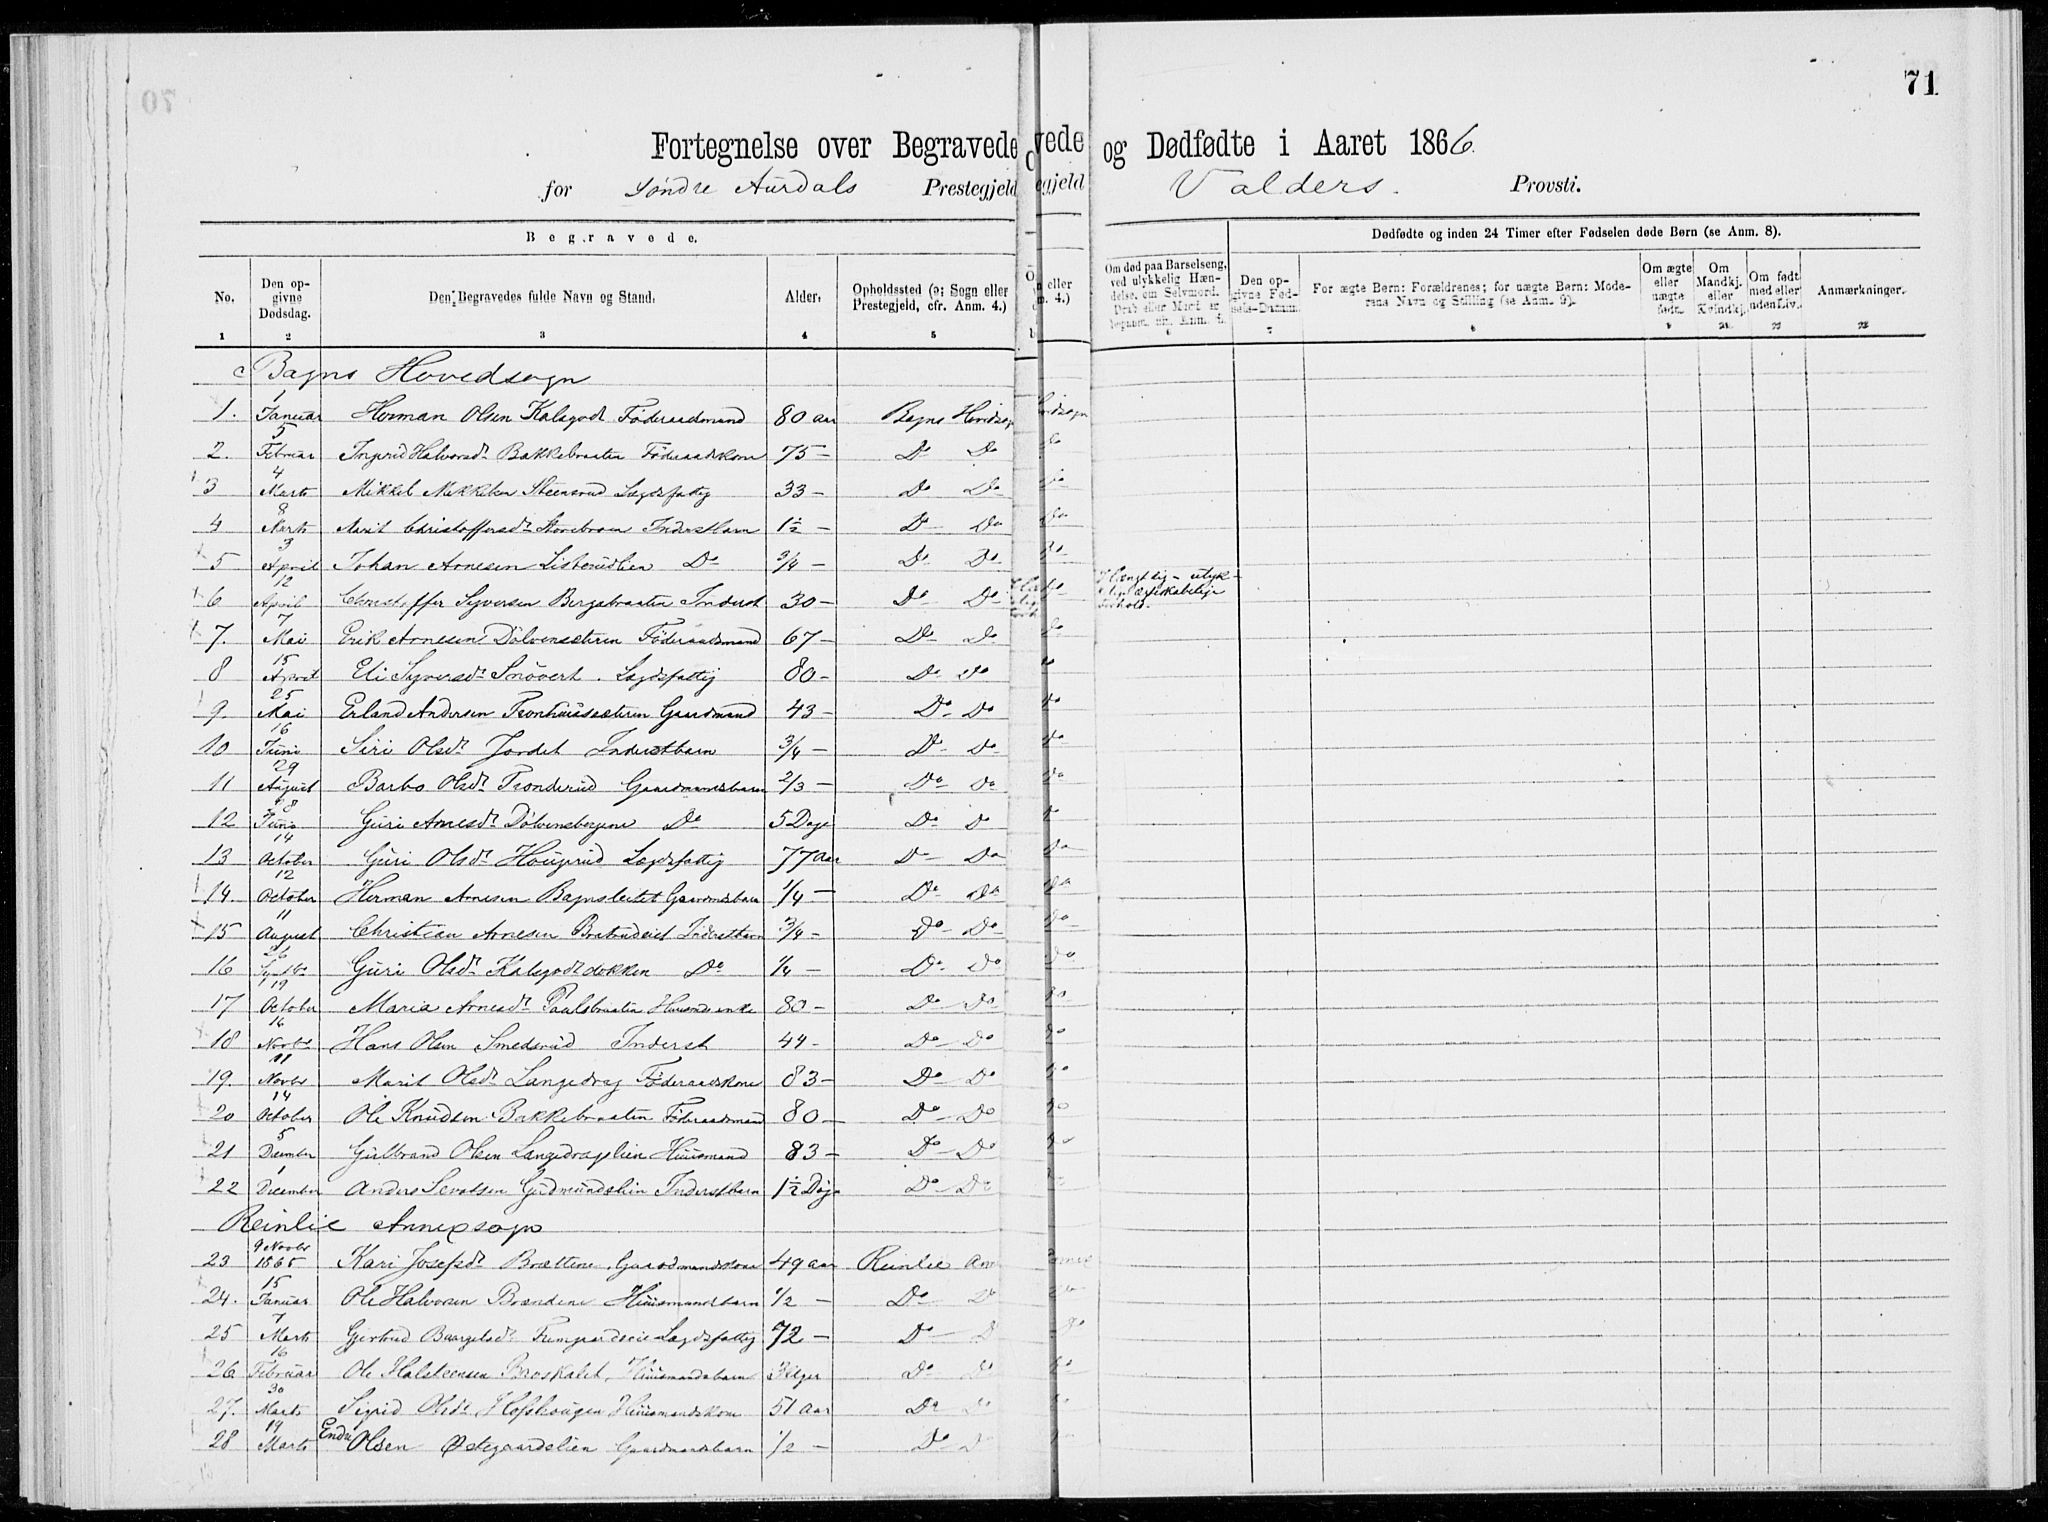 70
71
Fortegnelse over Begravede og Dødfødte i Aaret 1866.
for Søndre Aurdals Prestegjeld Valders. Provsti.
Begravede.
Dødfødte og inden 24 Timer efter Fødselen døde Børn (se Anm. 8).
No. Den opgivne Dødsdag. Den Begravedes fulde Navn og Stand. Alder. Opholdssted (o: Sogn eller Prestegjeld, cfr. Anm. 4.) Om død paa Barselseng, ved ulykkelig Hændelse, om Selvmord, Drab eller Mord er Den opgivne Fødsels-Datum. For ægte Børn: Forældrenes; for uægte Børn: Moderens Navn og Stilling (se Anm. 9). Om ægte eller uægte født. Om Mandkj. eller Kvindkj. Om født med eller uden Liv. Anmærkninger.
1 2 3 4 5 6 7 8 9 10 11 12
Bagns Hovedsogn
1. 1 Januar Herman Olsen Kalsgodt Føderaadsmand 80 aar Bagns Hovdsogn
2. 5 Februar Ingrid Halvorsdt Bakkebraaten Føderaadskone 75 - Do Do
3 4 Marts Mikkel Mikkelsen Steensrud Lægdsfattig 33 - Do Do
4 8 Marts Marit Christoffersdt Storebraaen Inderstbarn 1½ - Do Do
5 3 April Johan Arnesen Listerudlien Do 3/4 - Do Do
6 12 April Christoffer Syversen Bergabraaten Inderst 30 - Do Do
7. 7 Mai Erik Arnesen Dølvensæteren Føderaadsmand 67 - Do Do
8 15 April Eli Syversdt Snøvert. Lægdsfattig 80 - Do Do
9. 25 Mai Erland Andersen Tronhuussæteren Gaardmand 43 - Do Do
10 16 Juni Siri Olsdt Jordet Inderstbarn 3/4 - Do Do
11 29 August Barbo Olsdt Tronderud Gaardmandsbarn 2/3 - Do Do
12 8 Juni Guri Arnesdt Dølvensbergene Do 5 Dage Do Do
13 14 October Guri Olsdt Hougerud Lægdsfattig 77 Aar Do Do
14. 12 October Herman Arnesen Bagnsleitet Gaardmdsbarn 1/4 - Do Do
15 11 August Christian Arnesen Inderstbarn 3/4 - Do Do
16 26 Guri Olsdt Kalsgodtdokken Do 1/4 - Do Do
17 19 October Maria Arnesdt Paalsbraaten Huusmdsenke 80 - Do Do
18 16 Novbr Hans Olsen Smedsrud Inderst 44 - Do Do
19. 11 Novbr Marit Olsdt Langedrag Føderaadskone 83 - Do Do
20 14 October Ole Knudsen Bakkebraaten Føderaadsmand 80 - Do Do
21 5 December Gulbrand Olsen Langedragslien Huusmand 83 - Do Do
22 1 December Anders Sevalsen Gudmundslien Inderstbarn 1½ Dage Do Do
Reinlie Annexsogn
23 9 Novbr 1865 Kari Josefsdt Brættene Gaardmandskone 49 aar Reinlie Annex
24. 15 Januar Ole Halvorsen Brændene Huusmandsbarn 1/2 - Do Do
25 7 Marts Gjertrud Baargelsdt Lægdsfattig 72 - Do Do
26 16 Februar Ole Halsteensen Broskalet, Huusmandsbarn 3 Uger Do Do
27. 30 Marts Sigrid Olsdt Hofshougen Huusmandskone 51 aar Do Do
28 19 Marts Endre Olsen Østegaardslien Gaardmandsbarn 1/2 - Do Do